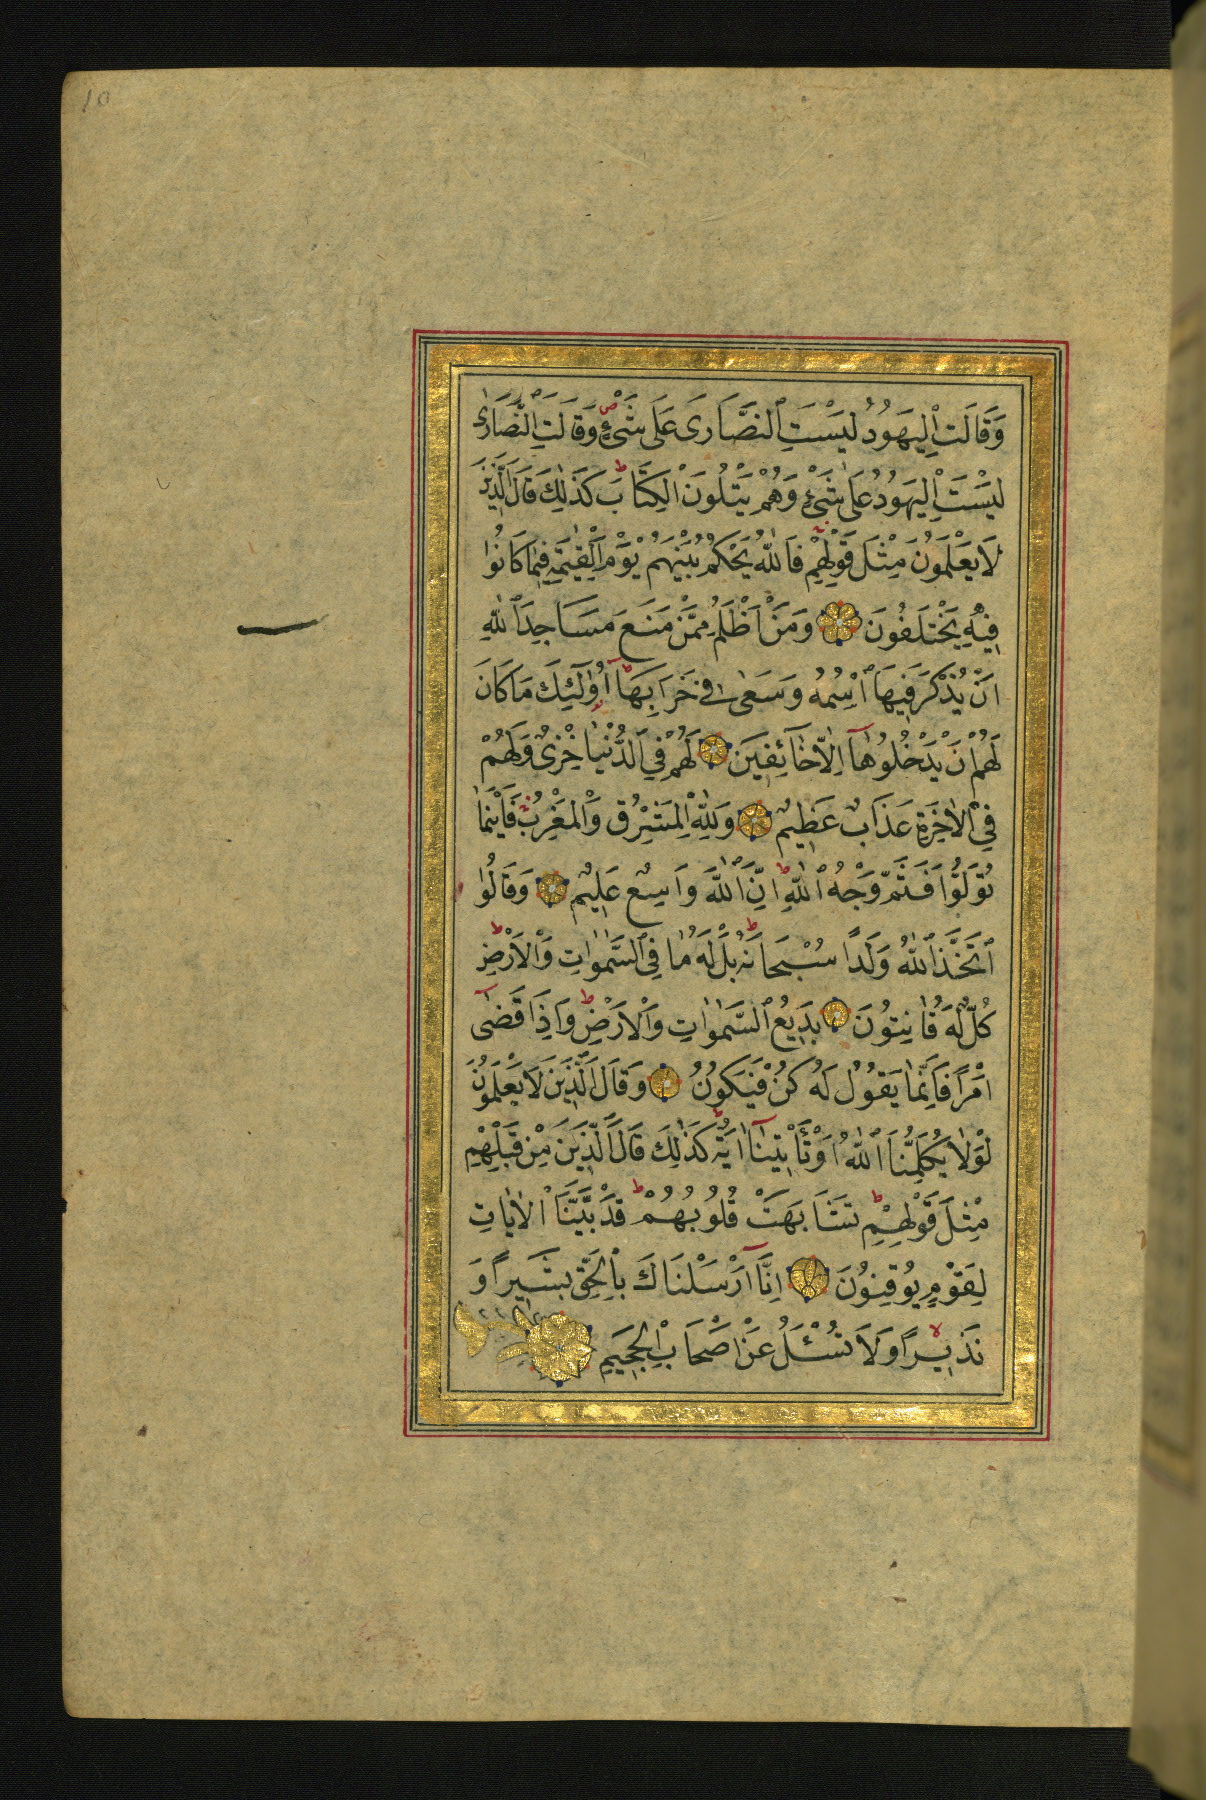 10
وَقَالَتِ ٱلْيَهُودُ لَيْسَتِ ٱلنَّصَارَى عَلَى شَيْءٍ وَقَالَتِ ٱلنَّصَارٰى
لَيْسَتِ ٱلْيَهُودُ عَلَى شَيْءٍ وَهُمْ يَتْلُونَ الْكِتَابَ كَذٰلِكَ قَالَ الَّذِينَ
لَا يَعْلَمُونَ مِثْلَ قَوْلِهِمْ فَاللّٰهُ يَحْكُمُ بَيْنَهُمْ يَوْمَ الْقِيٰمَةِ فِيمَا كَانُوا
فِيهِ يَخْتَلِفُونَ وَمَنْ اَظْلَمُ مِمَّنْ مَنَعَ مَسَاجِدَ ٱللّٰهِ
اَنْ يُذْكَرَ فِيهَا ٱسْمُهُ وَسَعٰى فِي خَرَابِهَا اُولٰٓئِكَ مَا كَانَ
لَهُمْ اَنْ يَدْخُلُوهَآ اِلَّا خَآئِفِينَ لَهُمْ فِي الدُّنْيَا خِزْيٌ وَلَهُمْ
فِي الْاٰخِرَةِ عَذَابٌ عَظِيمٌ وَلِلّٰهِ الْمَشْرِقُ وَالْمَغْرِبُ فَاَيْنَمَا
تُوَلُّوا فَثَمَّ وَجْهُ ٱللّٰهِ اِنَّ ٱللّٰهَ وَاسِعٌ عَلِيمٌ وَقَالُوا
ٱتَّخَذَ ٱللّٰهُ وَلَدًا سُبْحَانَهُ بَلْ لَهُ مَا فِي ٱلسَّمٰوٰاتِ وَالْاَرْضِ
كُلٌّ لَهُ قَانِتُونَ بَدِيعُ ٱلسَّمٰوٰاتِ وَالْاَرْضِ وَاِذَا قَضٰٓى
اَمْرًا فَاِنَّمَا يَقُولُ لَهُ كُنْ فَيَكُونُ وَقَالَ الَّذِينَ لَا يَعْلَمُونَ
لَوْلَا يُكَلِّمُنَا ٱللّٰهُ اَوْ تَأْتِينَآ اٰيَةٌ كَذٰلِكَ قَالَ الَّذِينَ مِنْ قَبْلِهِمْ
مِثْلَ قَوْلِهِمْ تَشَابَهَتْ قُلُوبُهُمْ قَدْ بَيَّنَّا الْاٰيَاتِ
لِقَوْمٍ يُوقِنُونَ اِنَّآ اَرْسَلْنَاكَ بِالْحَقِّ بَشِيرًا وَ
نَذِيرًا وَلَا تُسْئَلُ عَنْ اَصْحَابِ الْجَحِيمِ